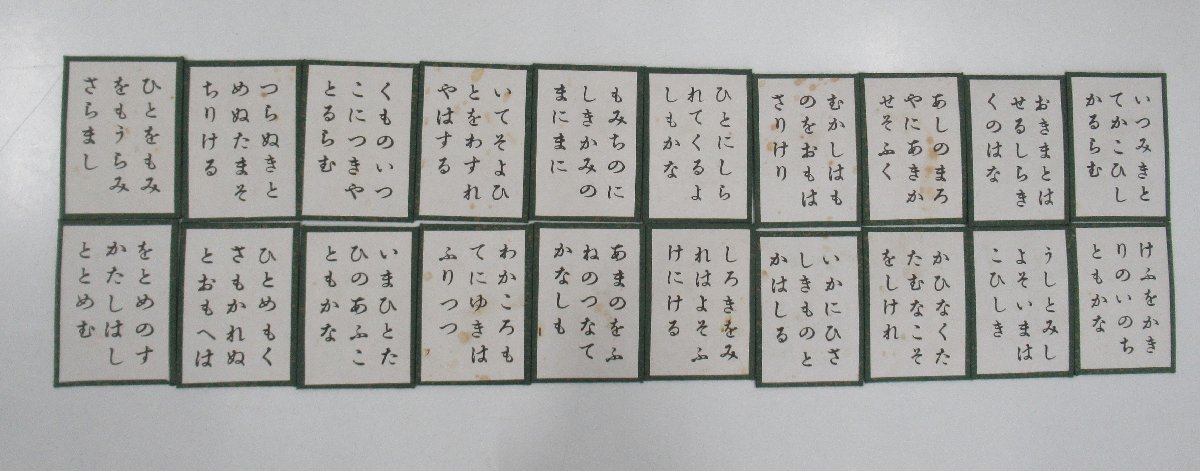 いつみきと
てかこひし
かるらむ
おきまとは
せるしらき
くのはな
あしのまろ
やにあきか
せそふく
むかしはも
のをおもは
さりけり
ひとにしら
れてくるよ
しもかな
もみちのに
しきかみの
まにまに
いてそよひ
とをわすれ
やはする
くものいつ
こにつきや
とるらむ
つらぬきと
めぬたまそ
ちりける
ひとをもみ
をもうらみ
さらまし
けふをかき
りのいのち
ともかな
うしとみし
よそいまは
こひしき
かひなくた
たむなこそ
をしけれ
いかにひさ
しきものと
かはしる
しろきをみ
れはよそふ
けにける
あまのをふ
ねのつなて
かなしも
わかころも
てにゆきは
ふりつつ
いまひとた
ひのあふこ
ともかな
ひとめもく
さもかれぬ
とおもへは
をとめのす
かたしはし
ととめむ